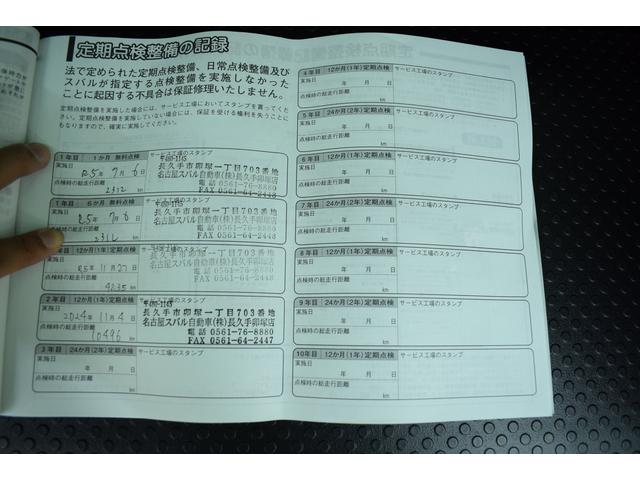 定期点検整備の記録
法で定められた定期点検整備、日常点検整備及び
スバルが指定する点検整備を実施しなかった
ことに起因する不具合は保証修理いたしません。
定期点検整備を実施した場合には、サービス工場においてスタンプを貰ってくだ
さい。定期点検整備を実施していない場合には、保証を受ける権利を失うことに
もなりますので、確実に実施してください。
1年目 1か月 無料点検 サービス工場のスタンプ
実施日 R5年 7月 6日
点検時の総走行距離 2312 km
〒480-1145
長久手市卯塚一丁目703番地
名古屋スバル自動車(株)長久手卯塚店
電話 0561-76-8880
FAX 0561-64-2448
1年目 6か月 無料点検 サービス工場のスタンプ
実施日 R5年 7月 6日
点検時の総走行距離 2312 km
長久手市卯塚一丁目703番地
名古屋スバル自動車(株)長久手卯塚店
電話 0561-76-8880
FAX 0561-64-2448
12か月(1年)定期点検 サービス工場のスタンプ
R5年 11月 27日
点検時の総走行距離 4235 km
長久手市卯塚一丁目703番地
名古屋スバル自動車(株)長久手卯塚店
電話 0561-76-8880
2年目 12か月(1年)定期点検
実施日 2024年 11月 4日
点検時の総走行距離 10496 km
〒480-1145
長久手市卯塚一丁目703番地
名古屋スバル自動車(株)長久手卯塚店
電話 0561-76-8880
FAX 0561-64-2447
3年目 24か月(2年)定期点検 サービス工場のスタンプ
実施日 年 月 日
点検時の総走行距離 km
4年目 12か月(1年)定期点検 サービス工場のスタンプ
実施日 年 月 日
点検時の総走行距離 km
5年目 24か月(2年)定期点検 サービス工場のスタンプ
実施日 年 月 日
点検時の総走行距離 km
6年目 12か月(1年)定期点検 サービス工場のスタンプ
実施日 年 月 日
点検時の総走行距離 km
7年目 24か月(2年)定期点検 サービス工場のスタンプ
実施日 年 月 日
点検時の総走行距離 km
8年目 12か月(1年)定期点検 サービス工場のスタンプ
実施日 年 月 日
点検時の総走行距離 km
9年目 24か月(2年)定期点検 サービス工場のスタンプ
実施日 年 月 日
点検時の総走行距離 km
10年目 12か月(1年)定期点検 サービス工場のスタンプ
実施日 年 月 日
点検時の総走行距離 km